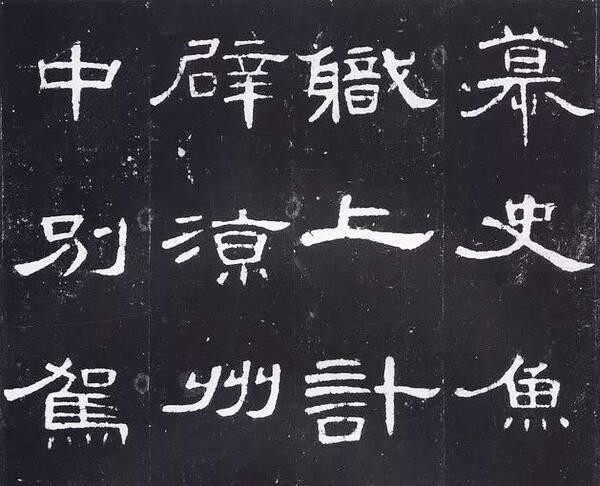 慕史魚
職上計
辟涼州
中別駕